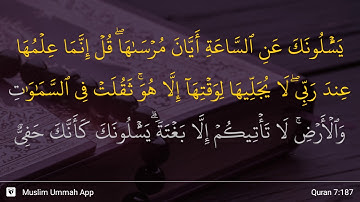 يَسْـَٔلُونَكَ عَنِ ٱلسَّاعَةِ أَيَّانَ مُرْسَىٰهَا ۖ قُلْ إِنَّمَا عِلْمُهَا
عِندَ رَبِّى ۖ لَا يُجَلِّيهَا لِوَقْتِهَآ إِلَّا هُوَ ۚ ثَقُلَتْ فِى ٱلسَّمَـٰوَٰتِ
وَٱلْأَرْضِ ۚ لَا تَأْتِيكُمْ إِلَّا بَغْتَةً ۗ يَسْـَٔلُونَكَ كَأَنَّكَ حَفِىٌّ
Muslim Ummah App
Quran 7:187